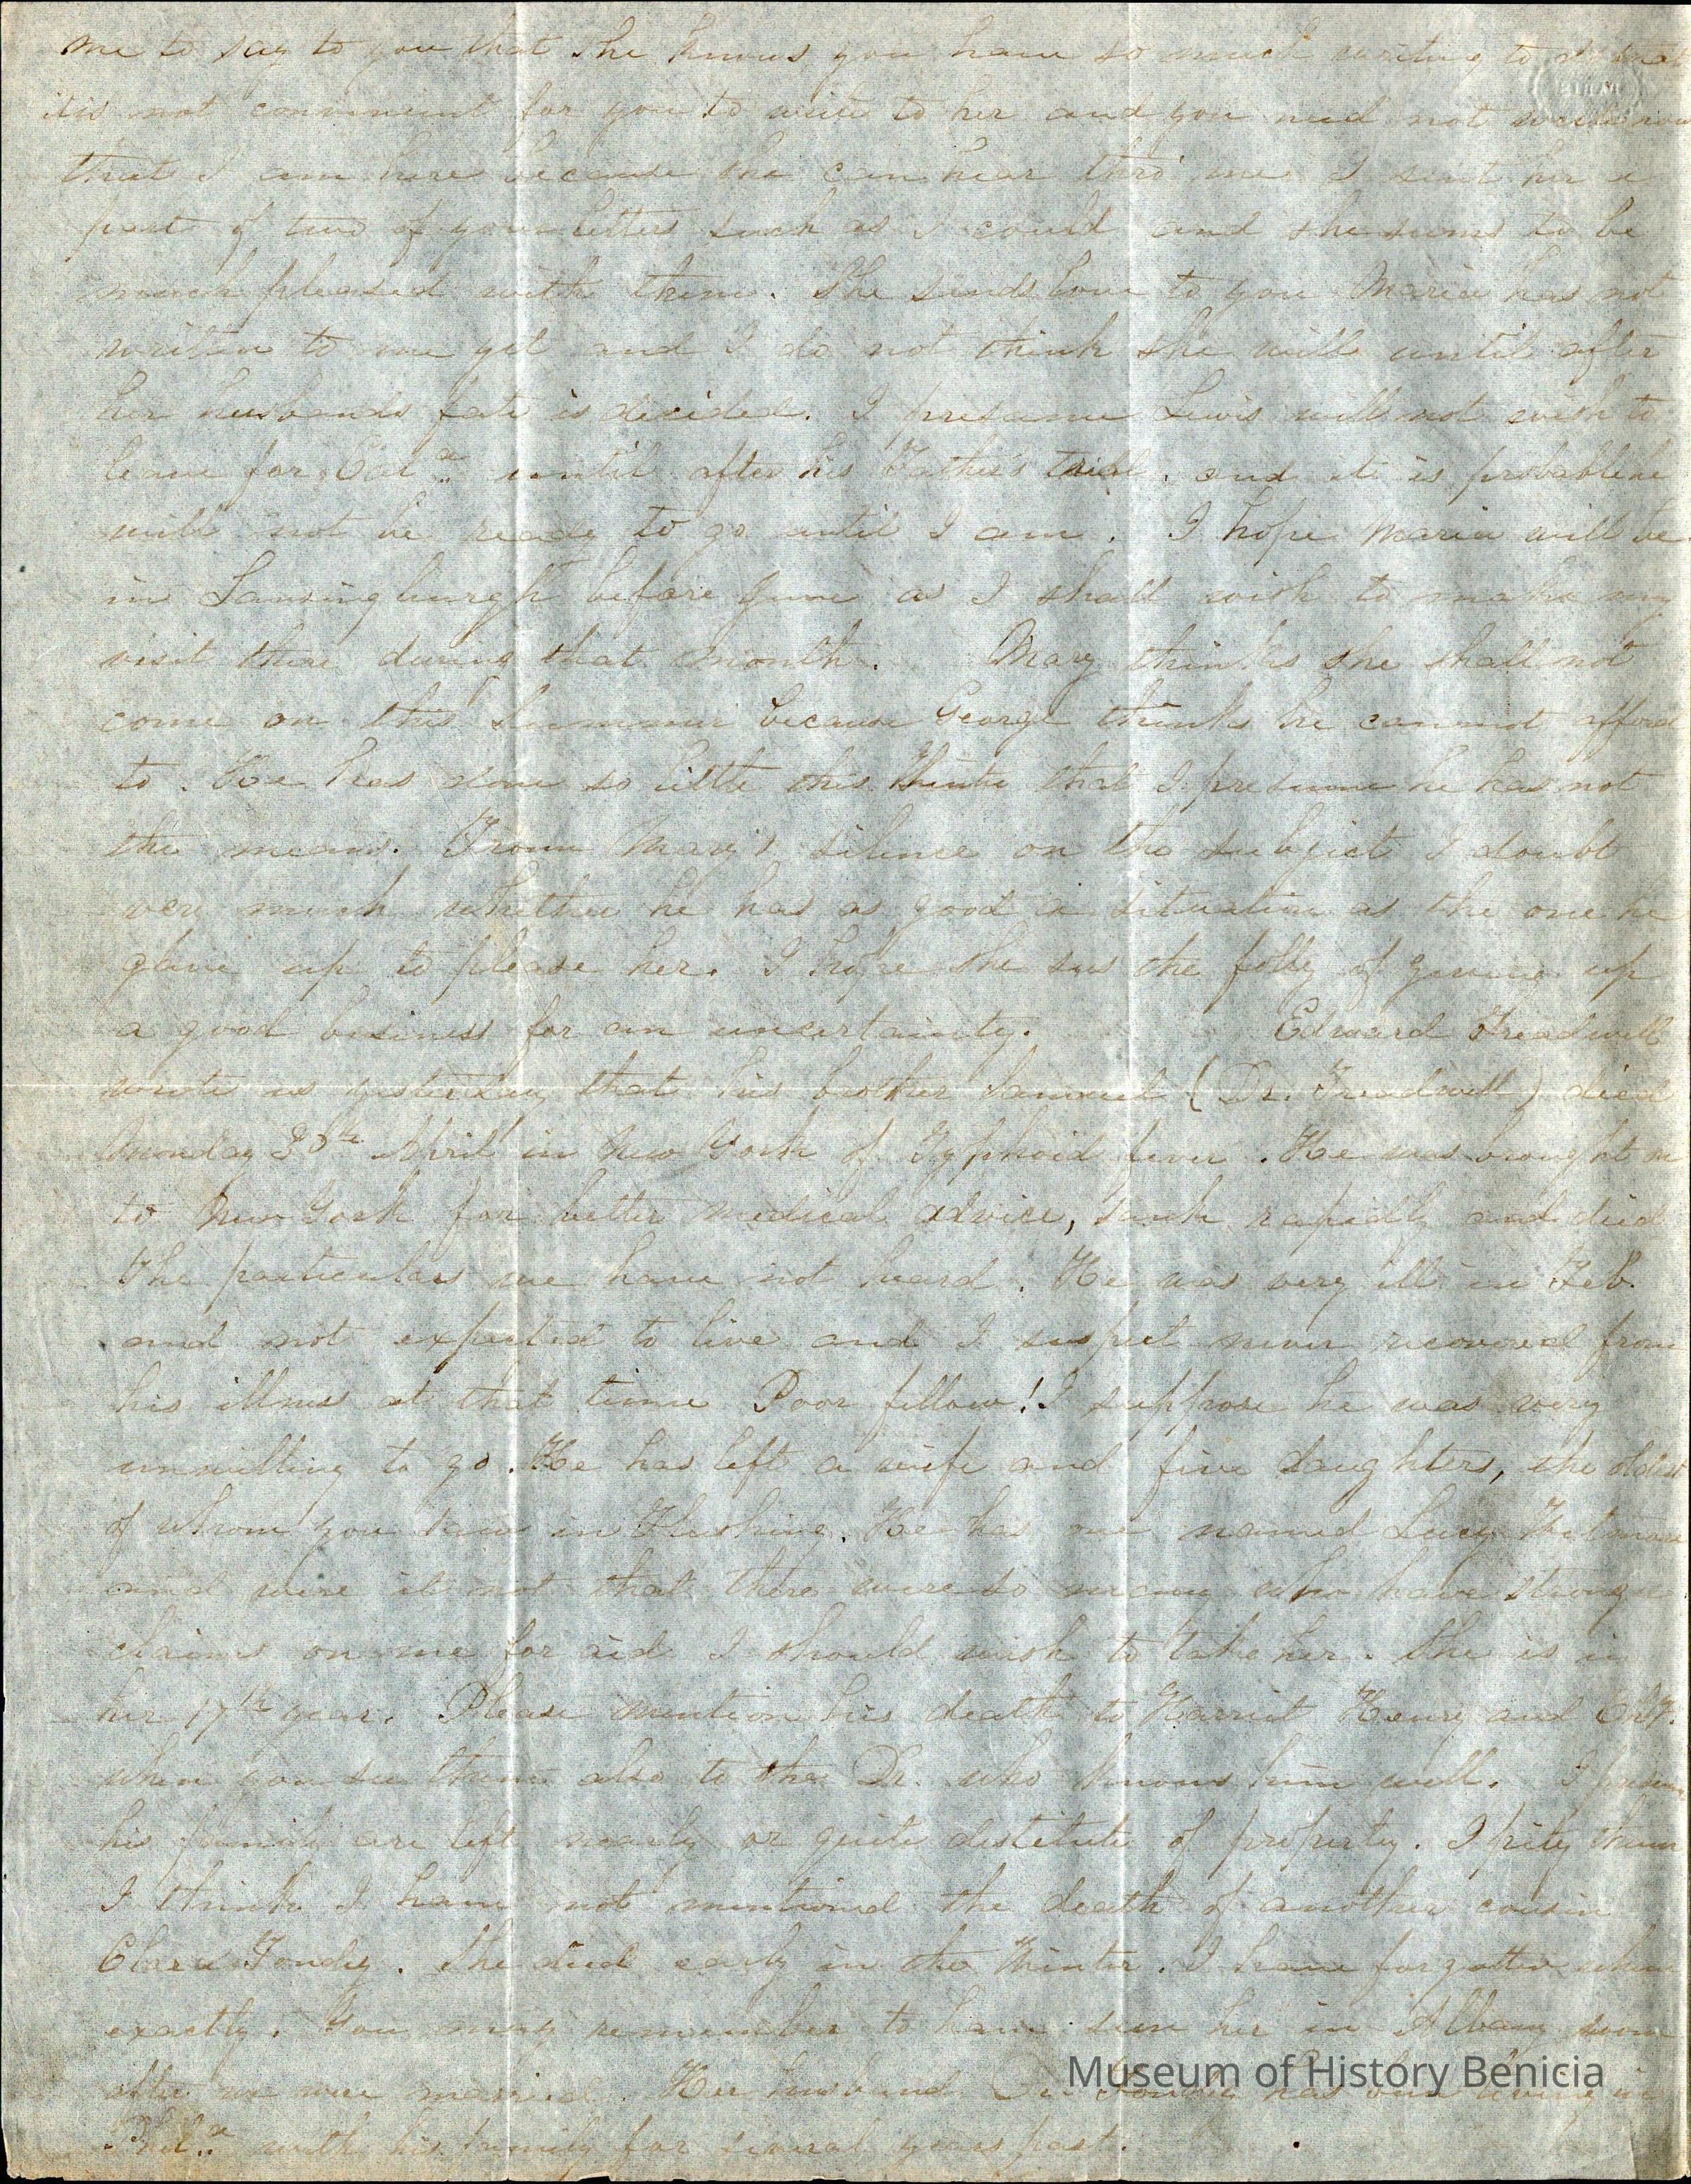 me to say to you that she knows you have so much writing to do that
it is not convenient for you to write to her and you need not write now
that I am here because she can hear thro' me I sent her a
part of two of your letters such as I could and she seems to be
much pleased with them. She sends love to you Maria has not
written to me yet and I do not think she will until after
her husbands fate is decided. I presume Lewis will not wish to
leave for Cal.a until after his Father's trial. and it is probable he
will not be ready to go until I am. I hope Maria will be
in Lansingburgh before June as I shall wish to make my
visit there during that month. Mary thinks she shall not
come on this Summer because George thinks he cannot afford
to. He has done so little this Winter that I presume he has not
the means. From Mary's silence on the subject I doubt
very much whether he has as good a situation as the one he
gave up to please her. I hope she sees the folly of giving up
a good business for an uncertainty. Edward Treadwell
wrote us yesterday that his brother Samuel (Dr. Treadwell) died
Monday 30th April in New York of Typhoid fever. He was brought on
to New York for better medical advice, sunk rapidly and died
The particulars we have not heard. He was very ill in Feb.
and not expected to live and I suspect never recovered from
his illness at that time Poor fellow! I suppose he was very
unwilling to go. He has left a wife and five daughters, the oldest
of whom you saw in Flushing. He has one named Lucy
and were it not that there were so many who have stronger
claims on me for aid I should wish to take her. She is in
her 17th year. Please mention his death to Harriet Henry and
when you see them also to the Dr. who knows him well. I presume
his family are left nearly or quite destitute of property. I pity them
I think I have not mentioned the death of another cousin
Clara Tondey. She died early in the Winter. I have forgotten when
exactly. You may remember to have seen her in Albany soon
after we were married. Her husband has been living in
Phil.a with his family for several years past.
Museum of History Benicia